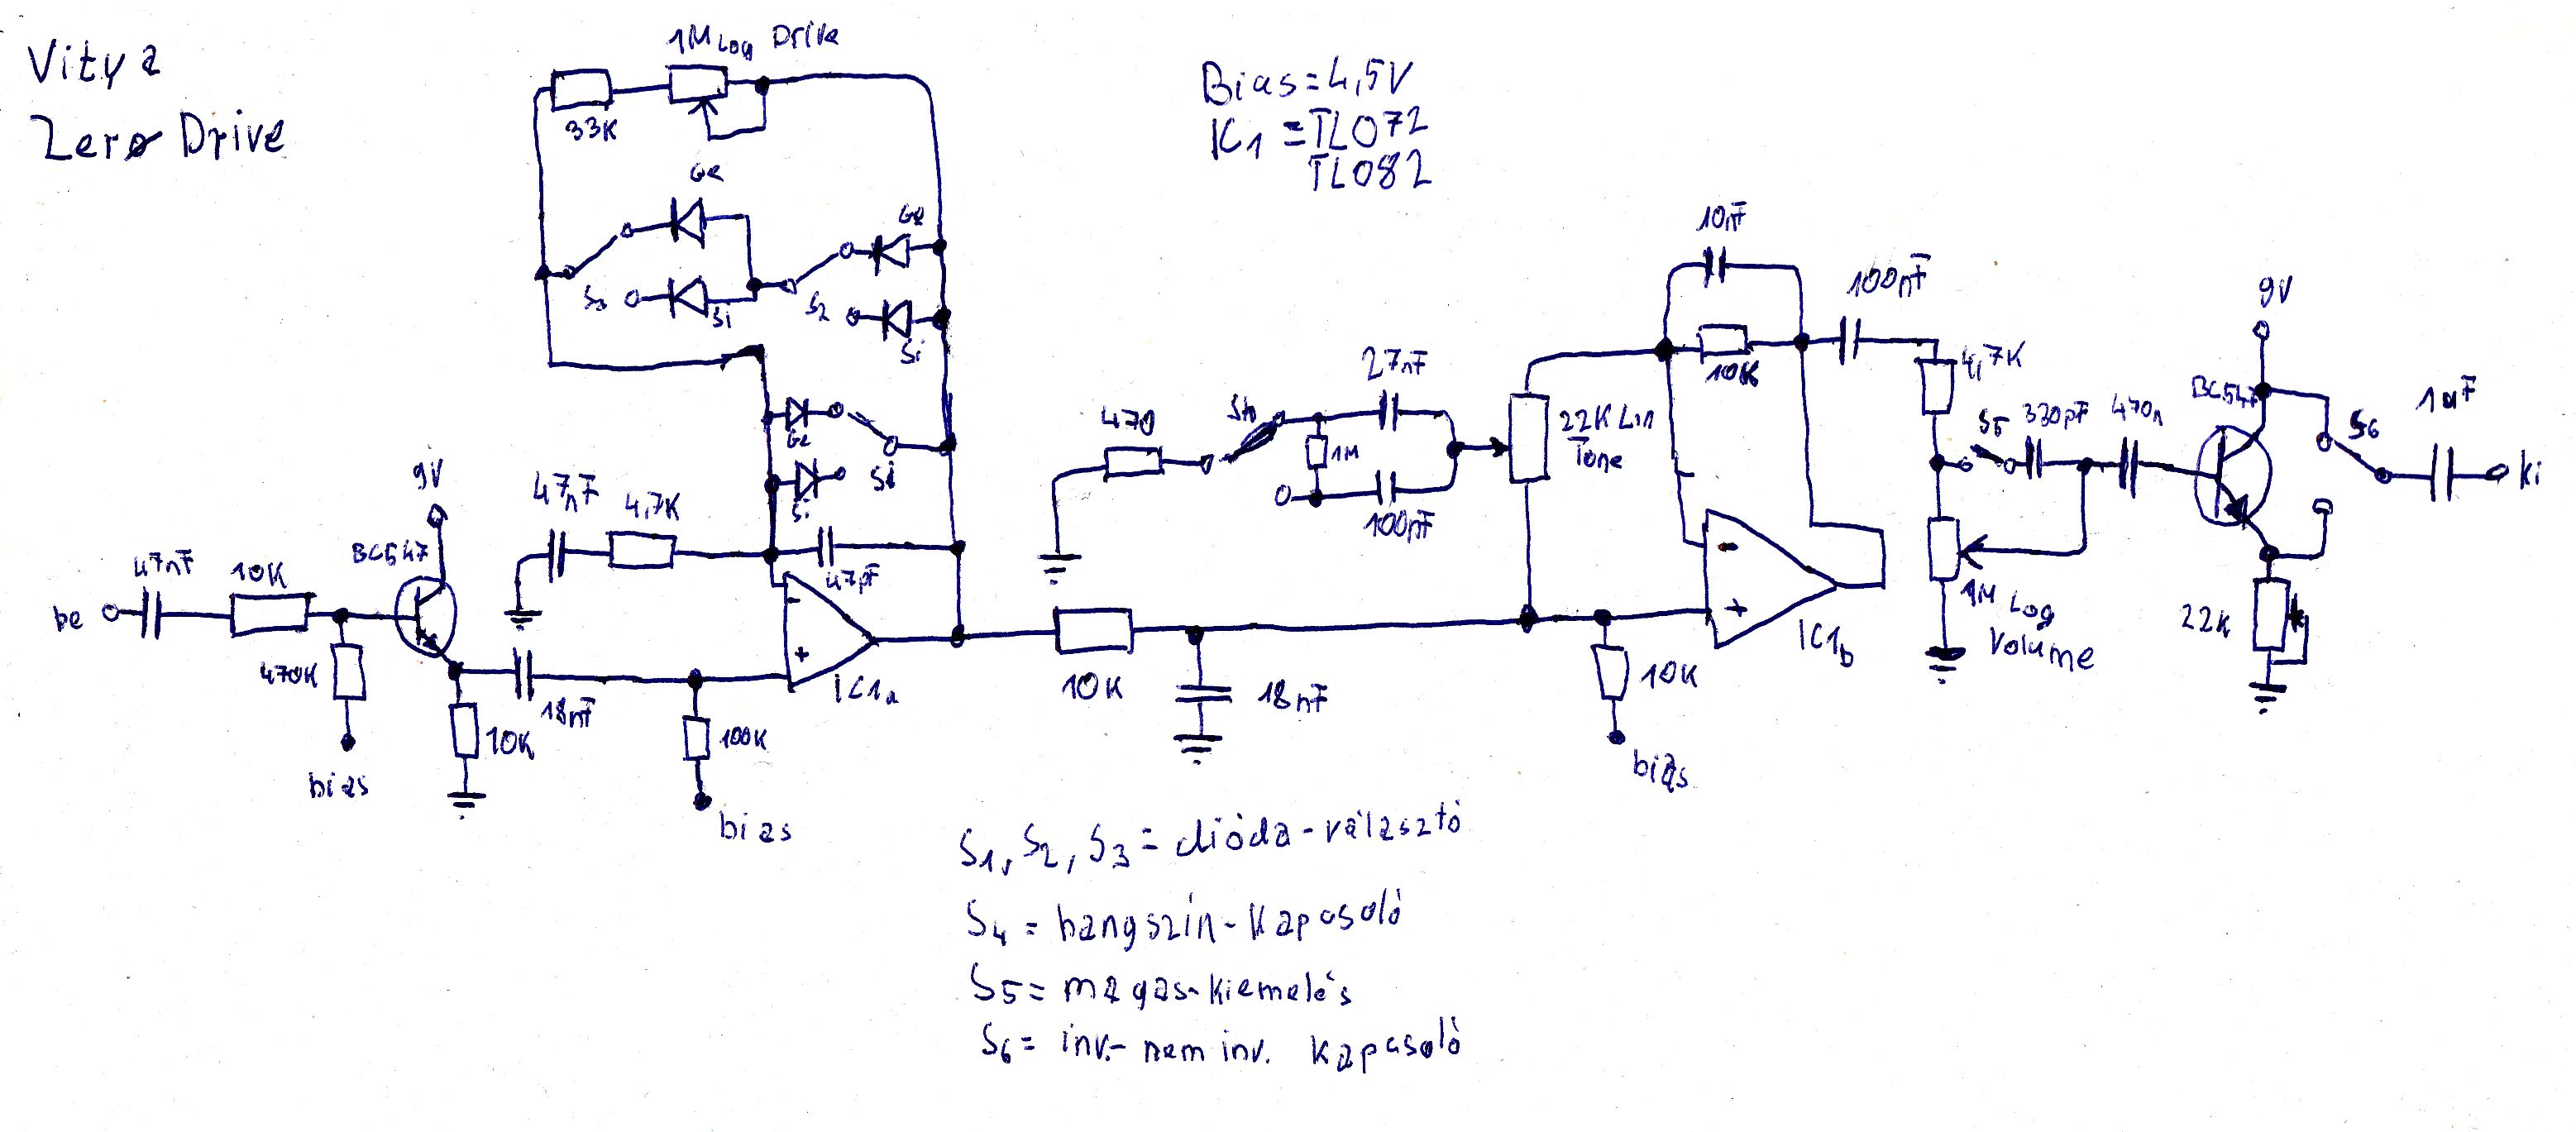 Vitya
Zero Drive
1M Log Drive
33K
Ge
Ge
S3
Si
S2
Si
Ge
Si
47nF
4,7K
47pF
9V
BC547
be
47nF
10K
470K
bias
10K
18nF
100K
bias
-
+
IC1a
Bias=4,5V
IC1 =TL072
TL082
470
1M
27nF
100nF
22K Lin
Tone
10K
18nF
10nF
10K
-
+
IC1b
10K
bias
100nF
4,7K
S5
330pF
470n
1M Log
Volume
9V
BC547
S6
22K
1uF
ki
S1, S2, S3 = dióda-választó
S4 = hangszín-kapcsoló
S5 = magas-kiemelés
S6 = inv.- nem inv. kapcsoló